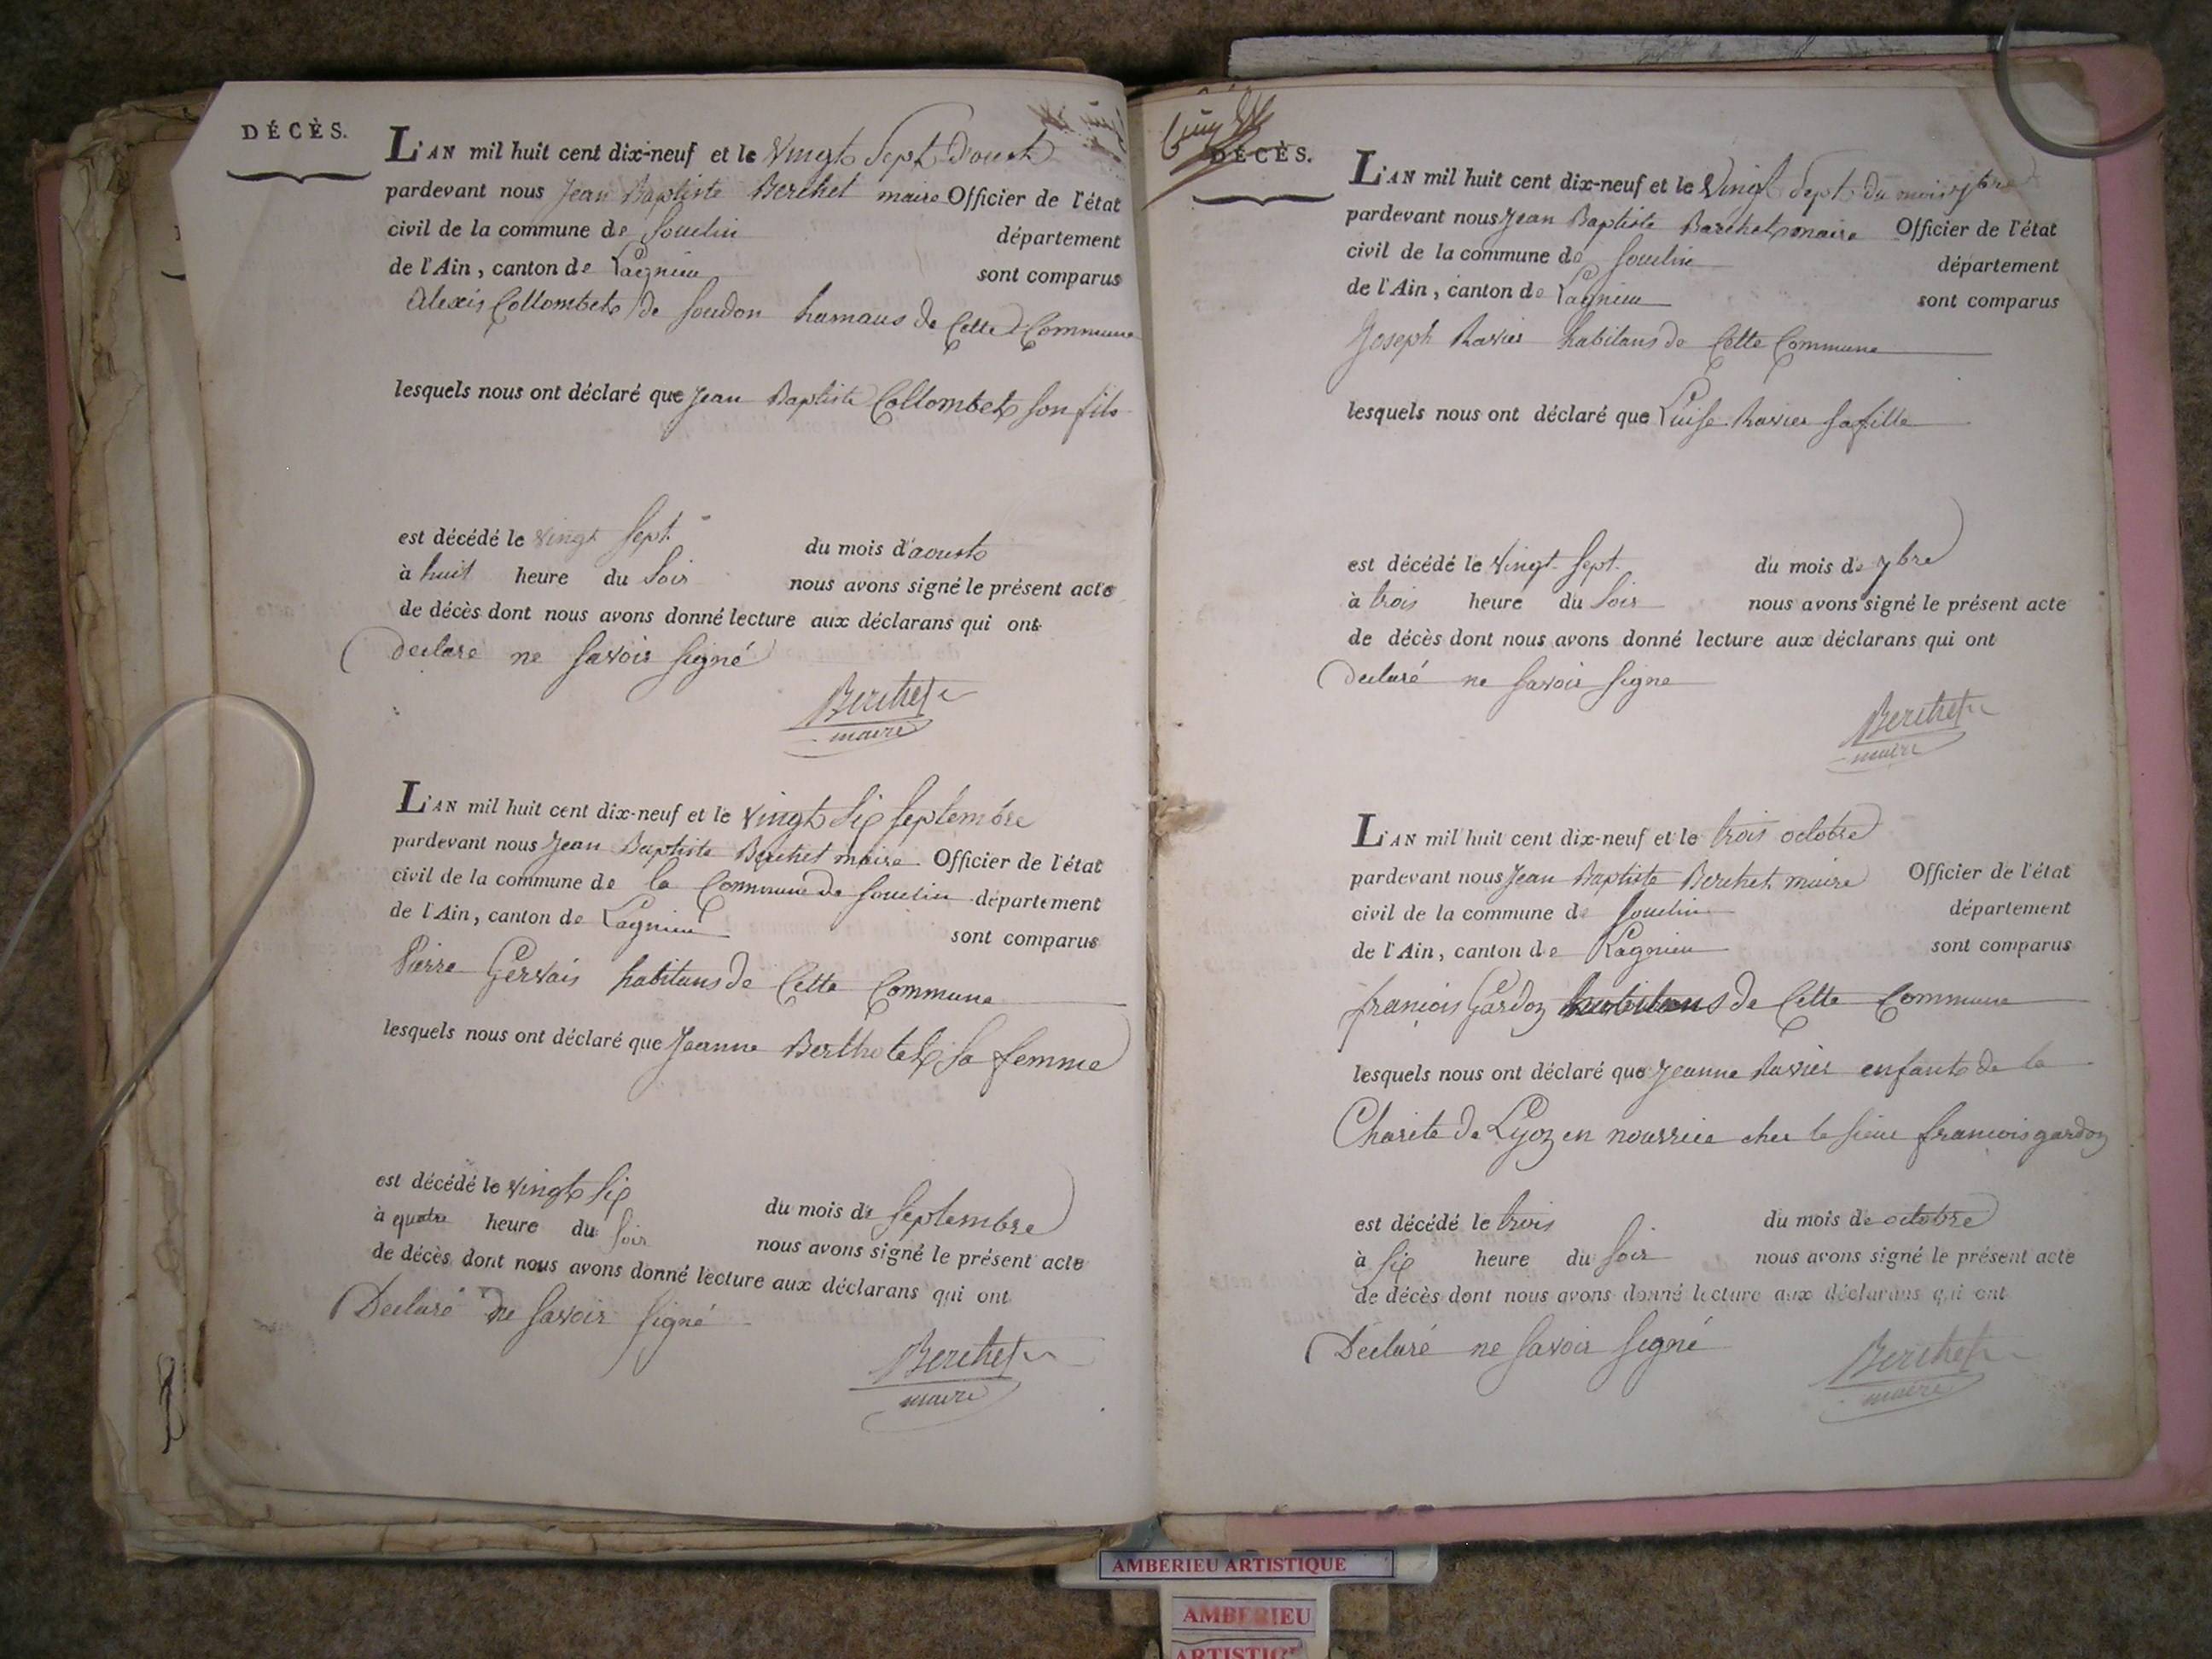 DÉCÈS.
L'AN mil huit cent dix-neuf et le Vingt Sept D'oust
pardevant nous Jean Baptiste Berthet maire Officier de l'état
civil de la commune de Souclin département
de l'Ain, canton de Lagnieu sont comparus
Alexis Collombet de Soudon de Cette Commune
lesquels nous ont déclaré que Jean Baptiste Collombet son fils
est décédé le vingt Sept du mois d'aoust
à huit heure du Soir nous avons signé le présent acte
de décès dont nous avons donné lecture aux déclarans qui ont
Declare ne Savoir Signé
Berthet
maire
L'AN mil huit cent dix-neuf et le Vingt Six Septembre
pardevant nous Jean Baptiste Berthet maire Officier de l'état
civil de la commune de la Commune de Souclin département
de l'Ain, canton de Lagnieu sont comparus
Pierre Gervais habitans de Cette Commune
lesquels nous ont déclaré que Jeanne Berthotet Sa femme
est décédé le vingt Six du mois de Septembre
à quatre heure du Soir nous avons signé le présent acte
de décès dont nous avons donné lecture aux déclarans qui ont
Declaré ne Savoir Signé
Berthet
maire
DÉCÈS.
L'AN mil huit cent dix-neuf et le Vingt Sept du mois 7bre
pardevant nous Jean Baptiste Barthet maire Officier de l'état
civil de la commune de Souclin département
de l'Ain, canton de Lagnieu sont comparus
Joseph Ravier habitans de Cette Commune
lesquels nous ont déclaré que Luise Ravier Sa fille
est décédé le Vingt Sept du mois de 7bre
à trois heure du Soir nous avons signé le présent acte
de décès dont nous avons donné lecture aux déclarans qui ont
Declaré ne Savoir Signe
Berthet
maire
L'AN mil huit cent dix-neuf et le trois octobre
pardevant nous Jean Baptiste Berthet maire Officier de l'état
civil de la commune de Souclin département
de l'Ain, canton de Lagnieu sont comparus
francois Gardon habitans de Cette Commune
lesquels nous ont déclaré que Jeanne Ravier enfant de la
Charite de Lyon en nourrice cher le Sieur francois gardon
est décédé le trois du mois de octobre
à Six heure du Soir nous avons signé le présent acte
de décès dont nous avons donné lecture aux déclarans qui ont
Declaré ne Savoir Signé
Berthet
maire
AMBERIEU ARTISTIQUE
AMBERIEU